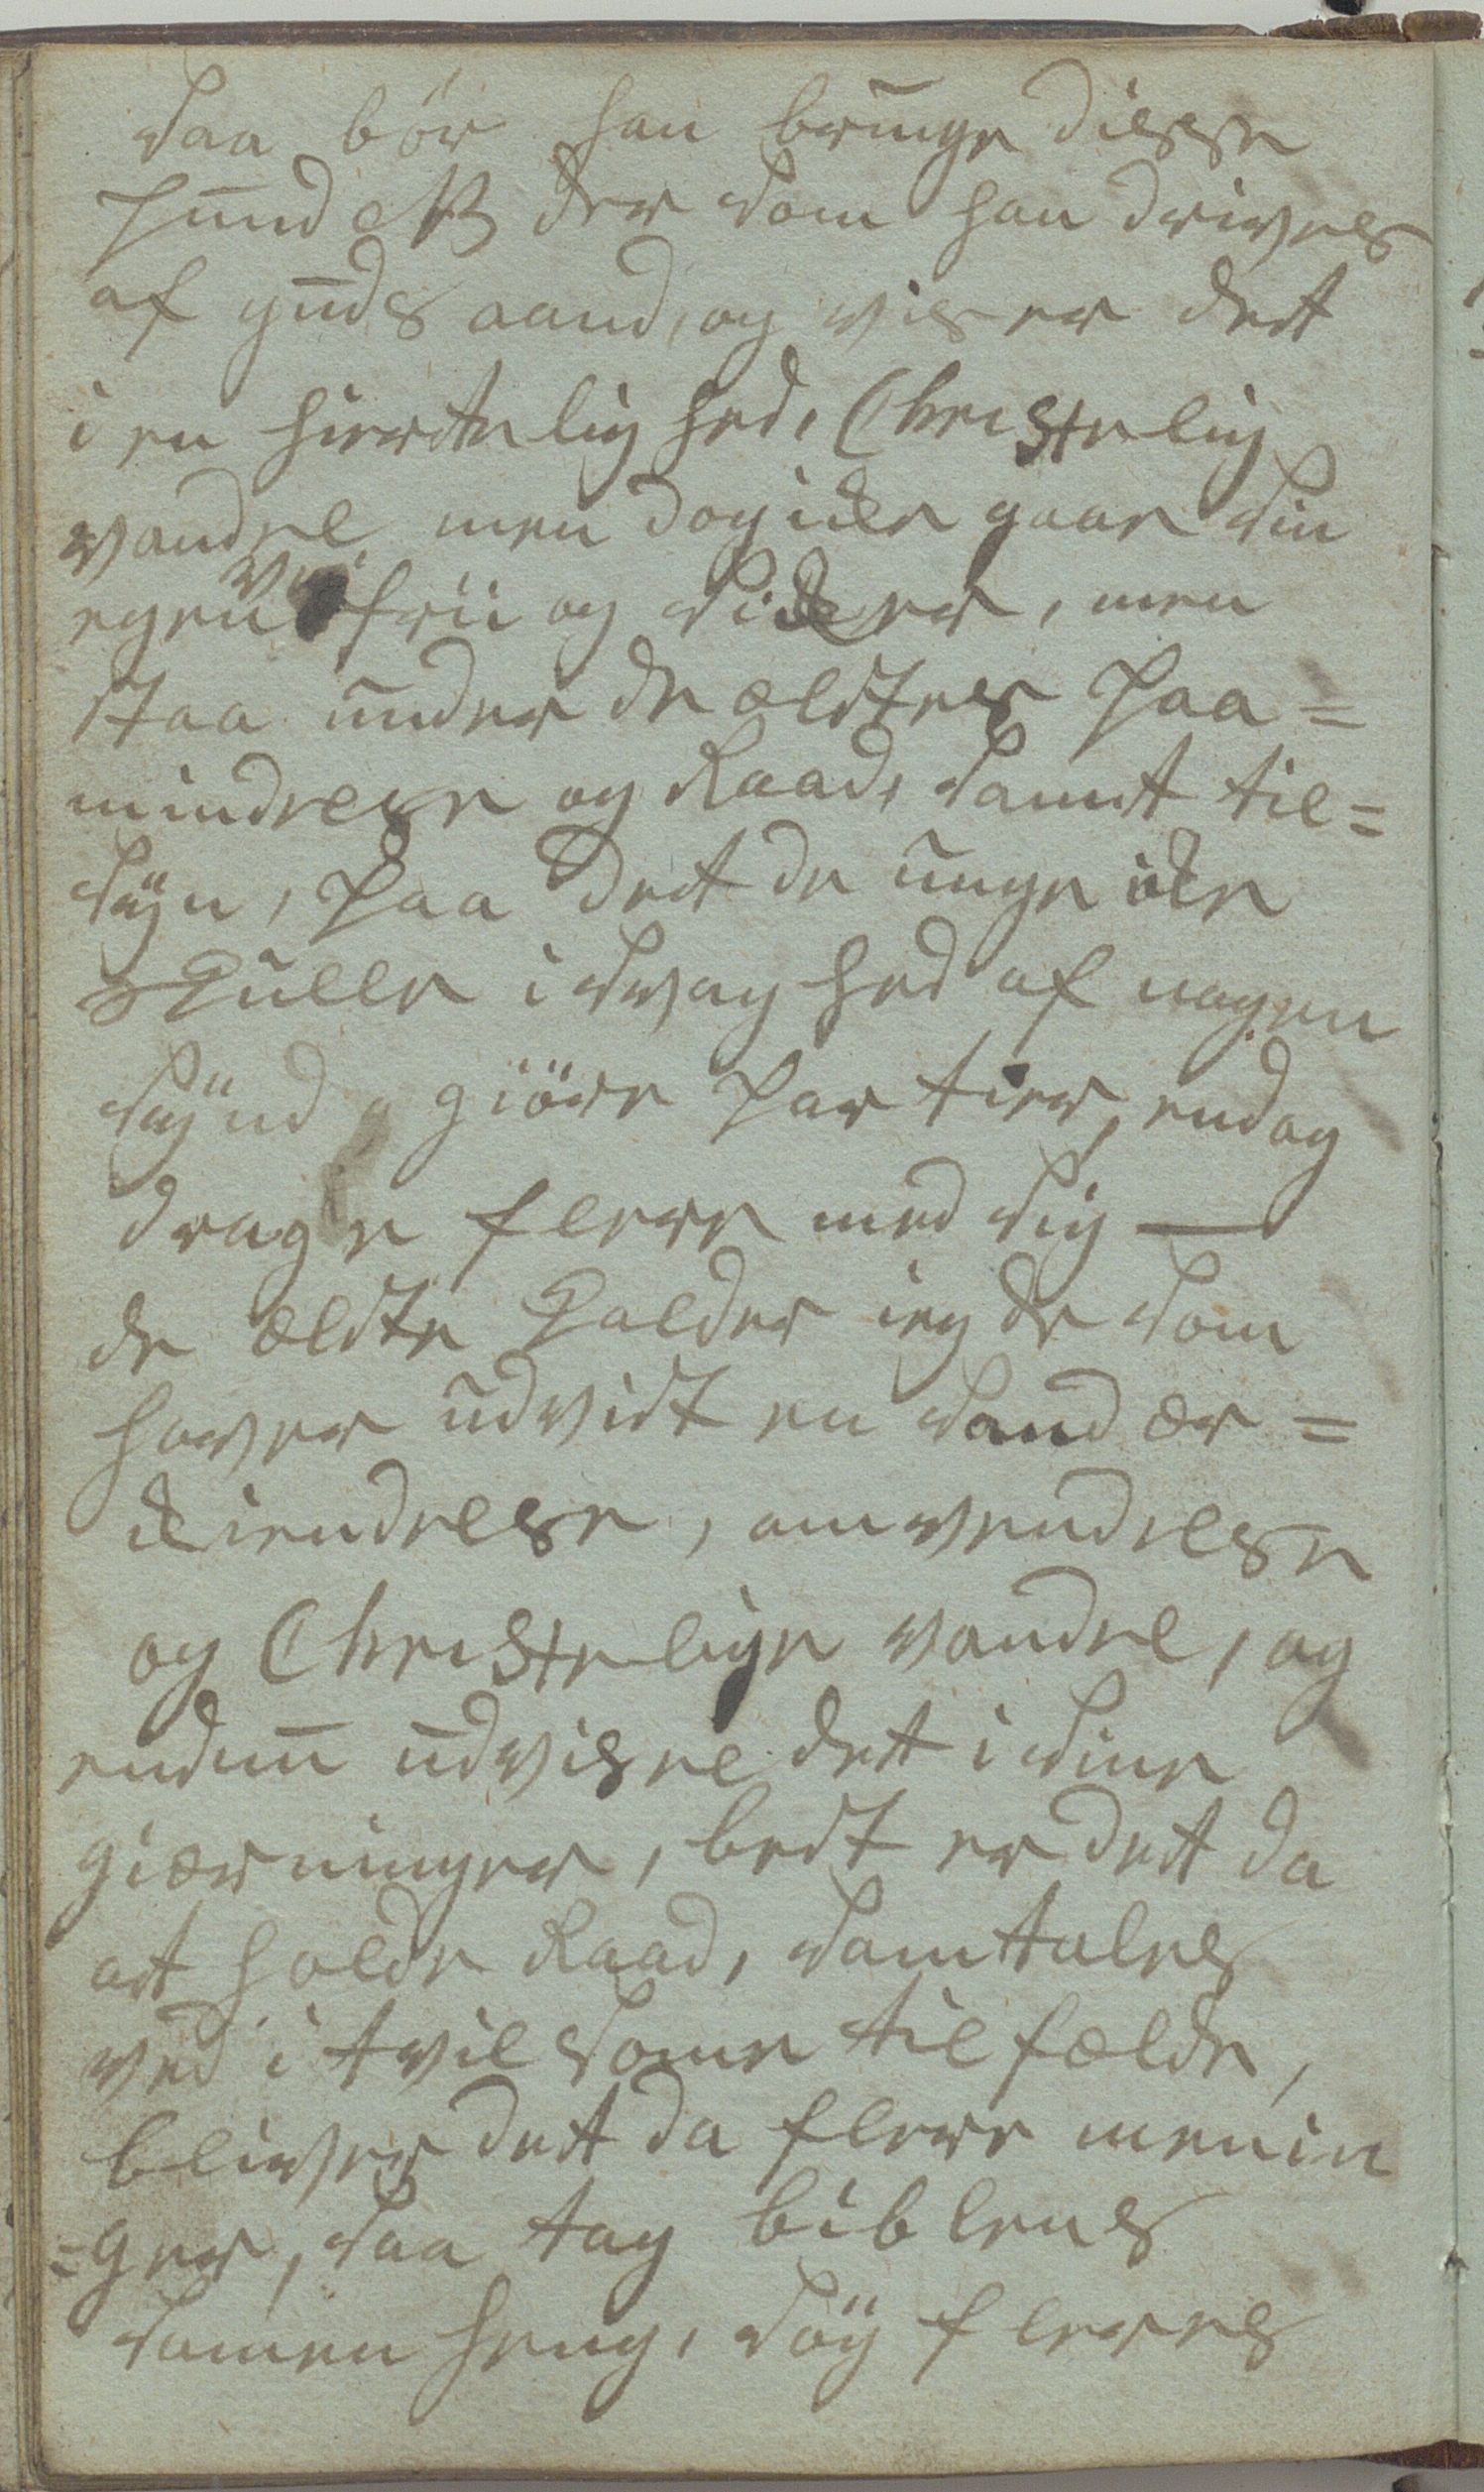 saa bör han bruge disse
pund etc der som han drives
af guds aand, og viser det
i en hiertelighed, Christelig
vandel men dog icke gaar sin
egen vei frii og sicker, men
staa under de ældstes Paa=
mindelse og Raad, samt til=
sÿn, paa det de unge icke
skulle i svaghed af nogen
sÿnd, giöre partier, endog
drage flere med sig —
de ældste kalder ieg de som
haver udvist en sand er=
kiendelse, omvendelse
og Christelige vandel, og
endnu udviser det i sine
gierninger, best er det da
at holde Raad, samtales
ved i tvilsome tilfælde,
bliver det da flere menin
=ger, saa tag biblens
sammenheng, söÿ fleeres